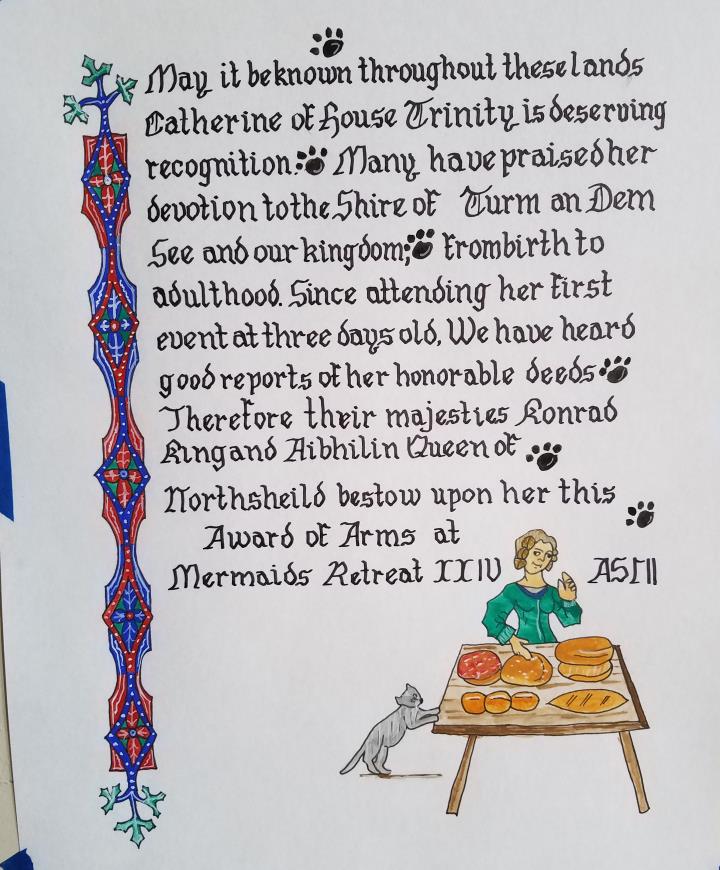 May it be known throughout these lands
Catherine of House Trinity is deserving
recognition. Many have praised her
devotion to the Shire of Turm an Dem
See and our kingdom; from birth to
adulthood. Since attending her first
event at three days old, We have heard
good reports of her honorable deeds
Therefore their majesties Konrad
King and Aibhilin Queen of
Northsheild bestow upon her this
Award of Arms at
Mermaids Retreat XXIV